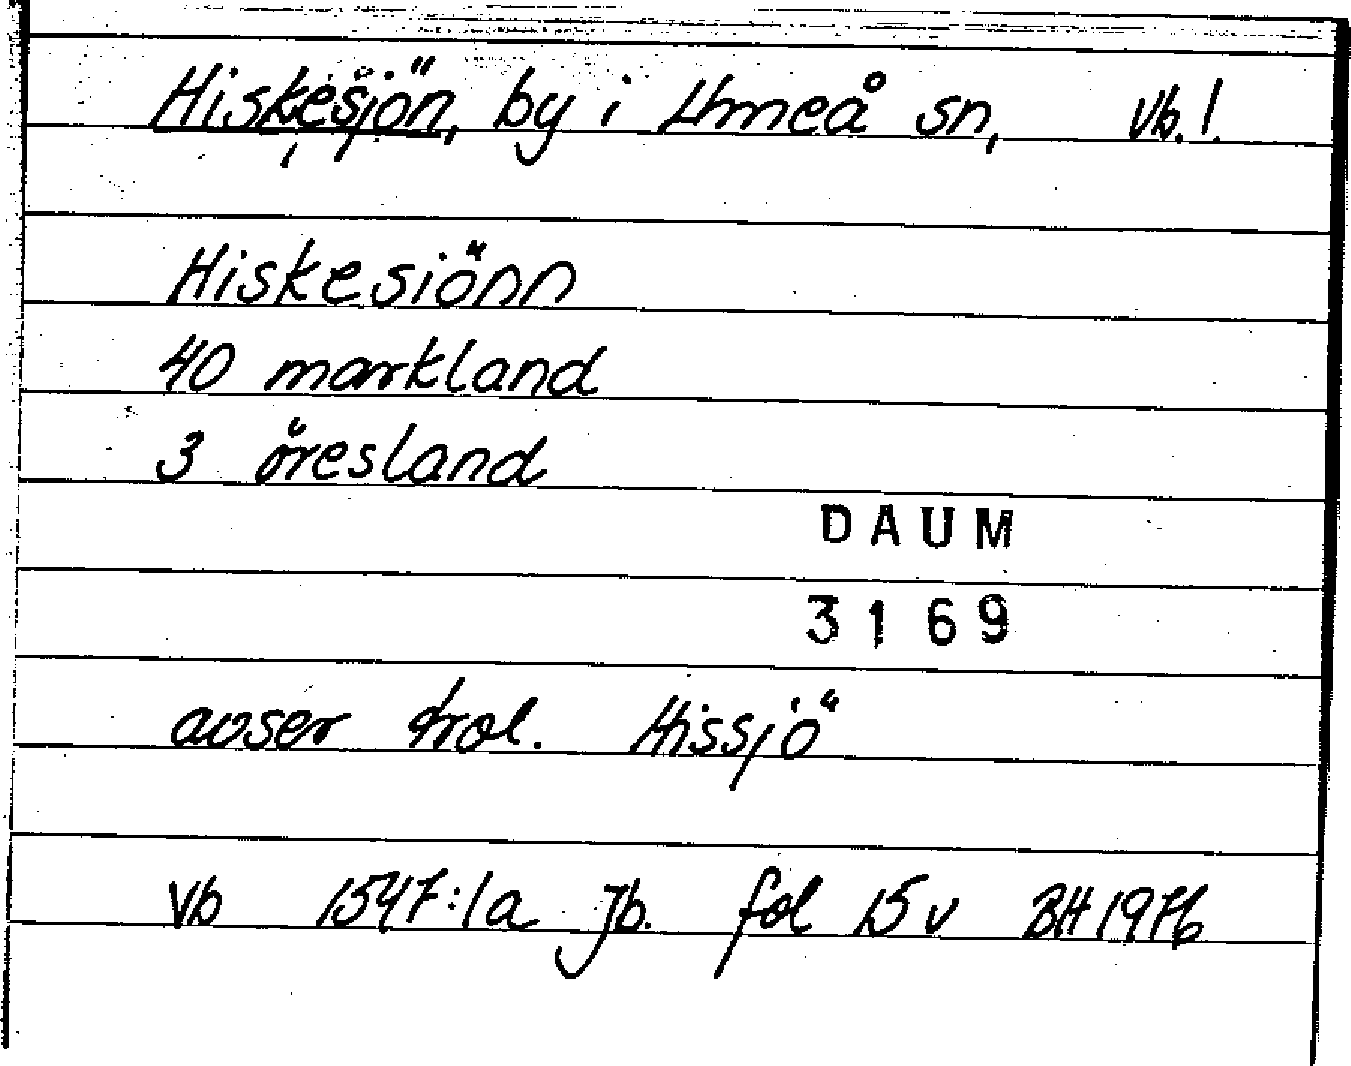 Hiskesjön, by i Umeå sn, Vb.l.
Hiskesiönn
40 markland
3 öresland
DAUM
3169
avser trol. Hissjö
Vb 1547:1a Jb. fol 15 v BH 1976